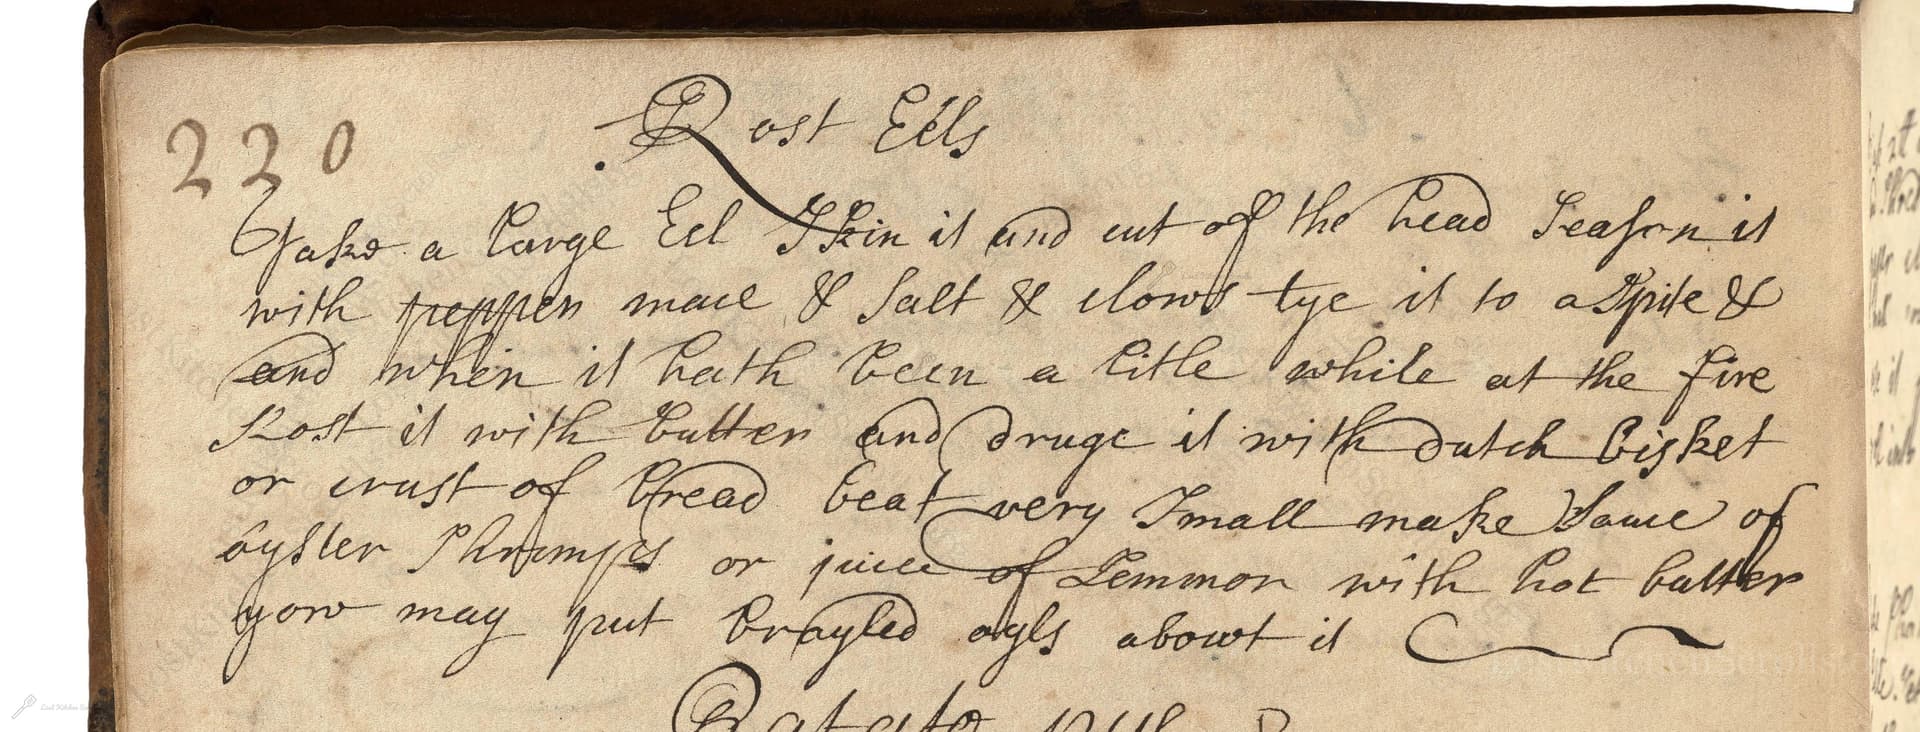 220
Rost Eels
Take a large Eel Skin it and cut of the head Season it
with peppen mace & Salt & clows tye it to a Spite &
and when it hath been a litle while at the fire
Rost it with butter and druge it with dutch bisket
or crust of bread beat very Small make Sauce of
oyster Shrimps or juice of Lemmon with hot butter
yow may put brayled ayls abowt it